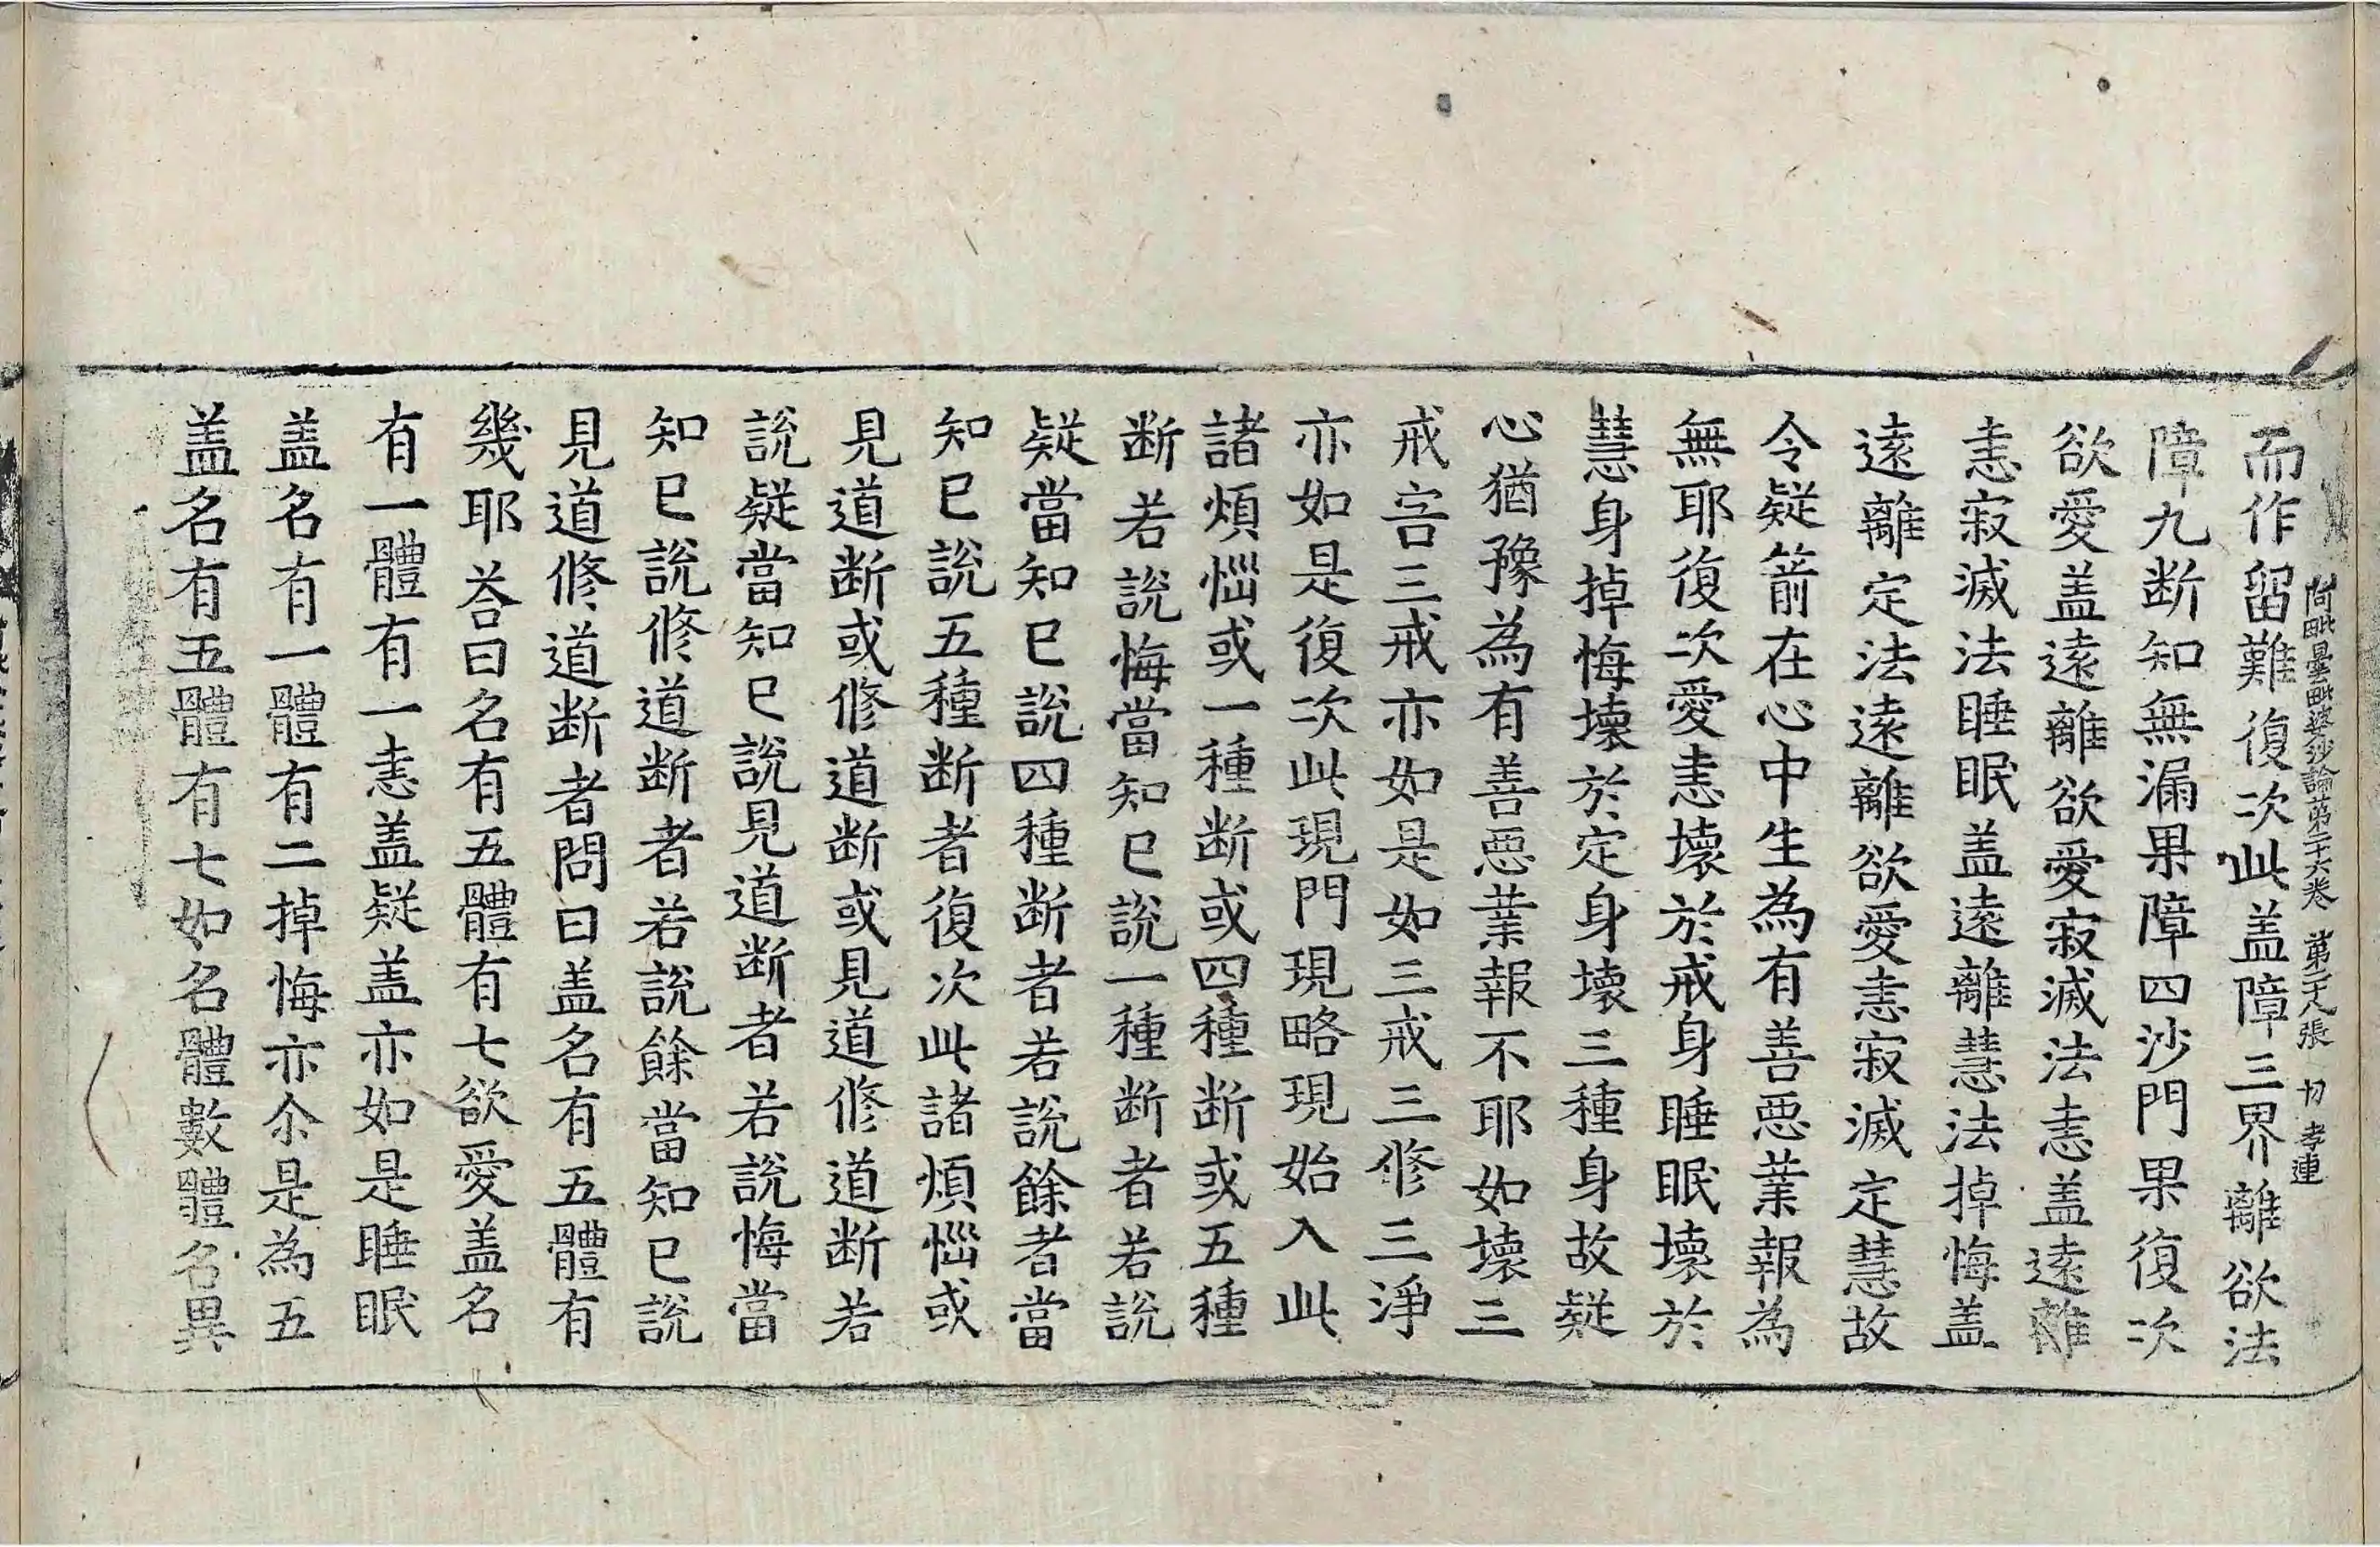 阿毗曇毗婆沙論第二十六卷　第二十八張　切　孝連
而作留難復次此盖障三界離欲法
障九断知無漏果障四沙門果復次
欲愛盖遠離欲愛寂滅法恚盖遠離
恚寂滅法睡眠盖遠離慧法掉悔盖
遠離定法遠離欲愛恚寂滅定慧故
令疑箭在心中生為有善惡業報為
無耶復次愛恚壞於戒身睡眠壞於
慧身掉悔壞於定身壞三種身故疑
心猶豫為有善惡業報不耶如壞三
戒害三戒亦如是如三戒三修三淨
亦如是復次此現門現略現始入此
諸煩惱或一種断或四種断或五種
断若說悔當知已說一種断者若說
疑當知已說四種断者若說餘者當
知已說五種断者復次此諸煩惱或
見道断或修道断或見道修道断若
說疑當知已說見道断者若說悔當
知已說修道断者若說餘當知已說
見道修道断者問曰盖名有五體有
幾耶荅曰名有五體有七欲愛盖名
有一體有一恚盖疑盖亦如是睡眠
盖名有一體有二掉悔亦尒是為五
盖名有五體有七如名體數體名異